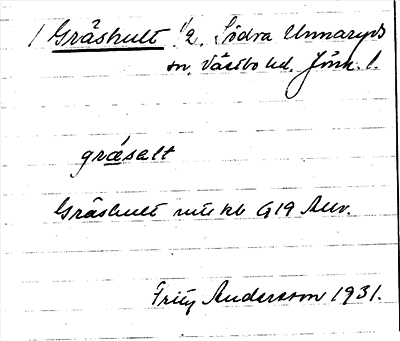 1 Gråshult 1/2. Södra Unnaryds
sn. Västbo hd. Jönk. l.
gråsalt
Gråshult mtl kb G19 Auv.
Fritz Andersson 1931.